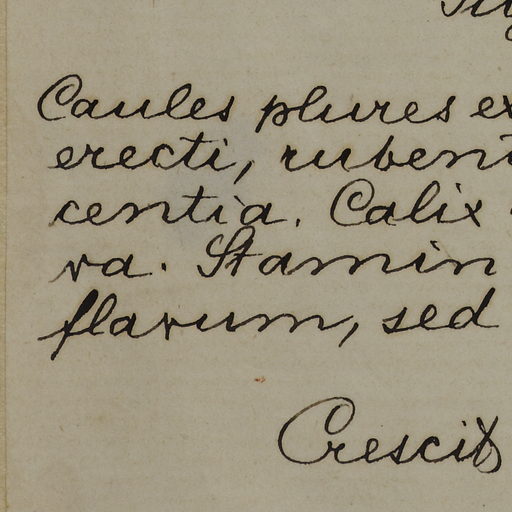 Caules plures ex
erecti, rubent
centia. Calix
va. Stamin
flavum, sed
Crescit